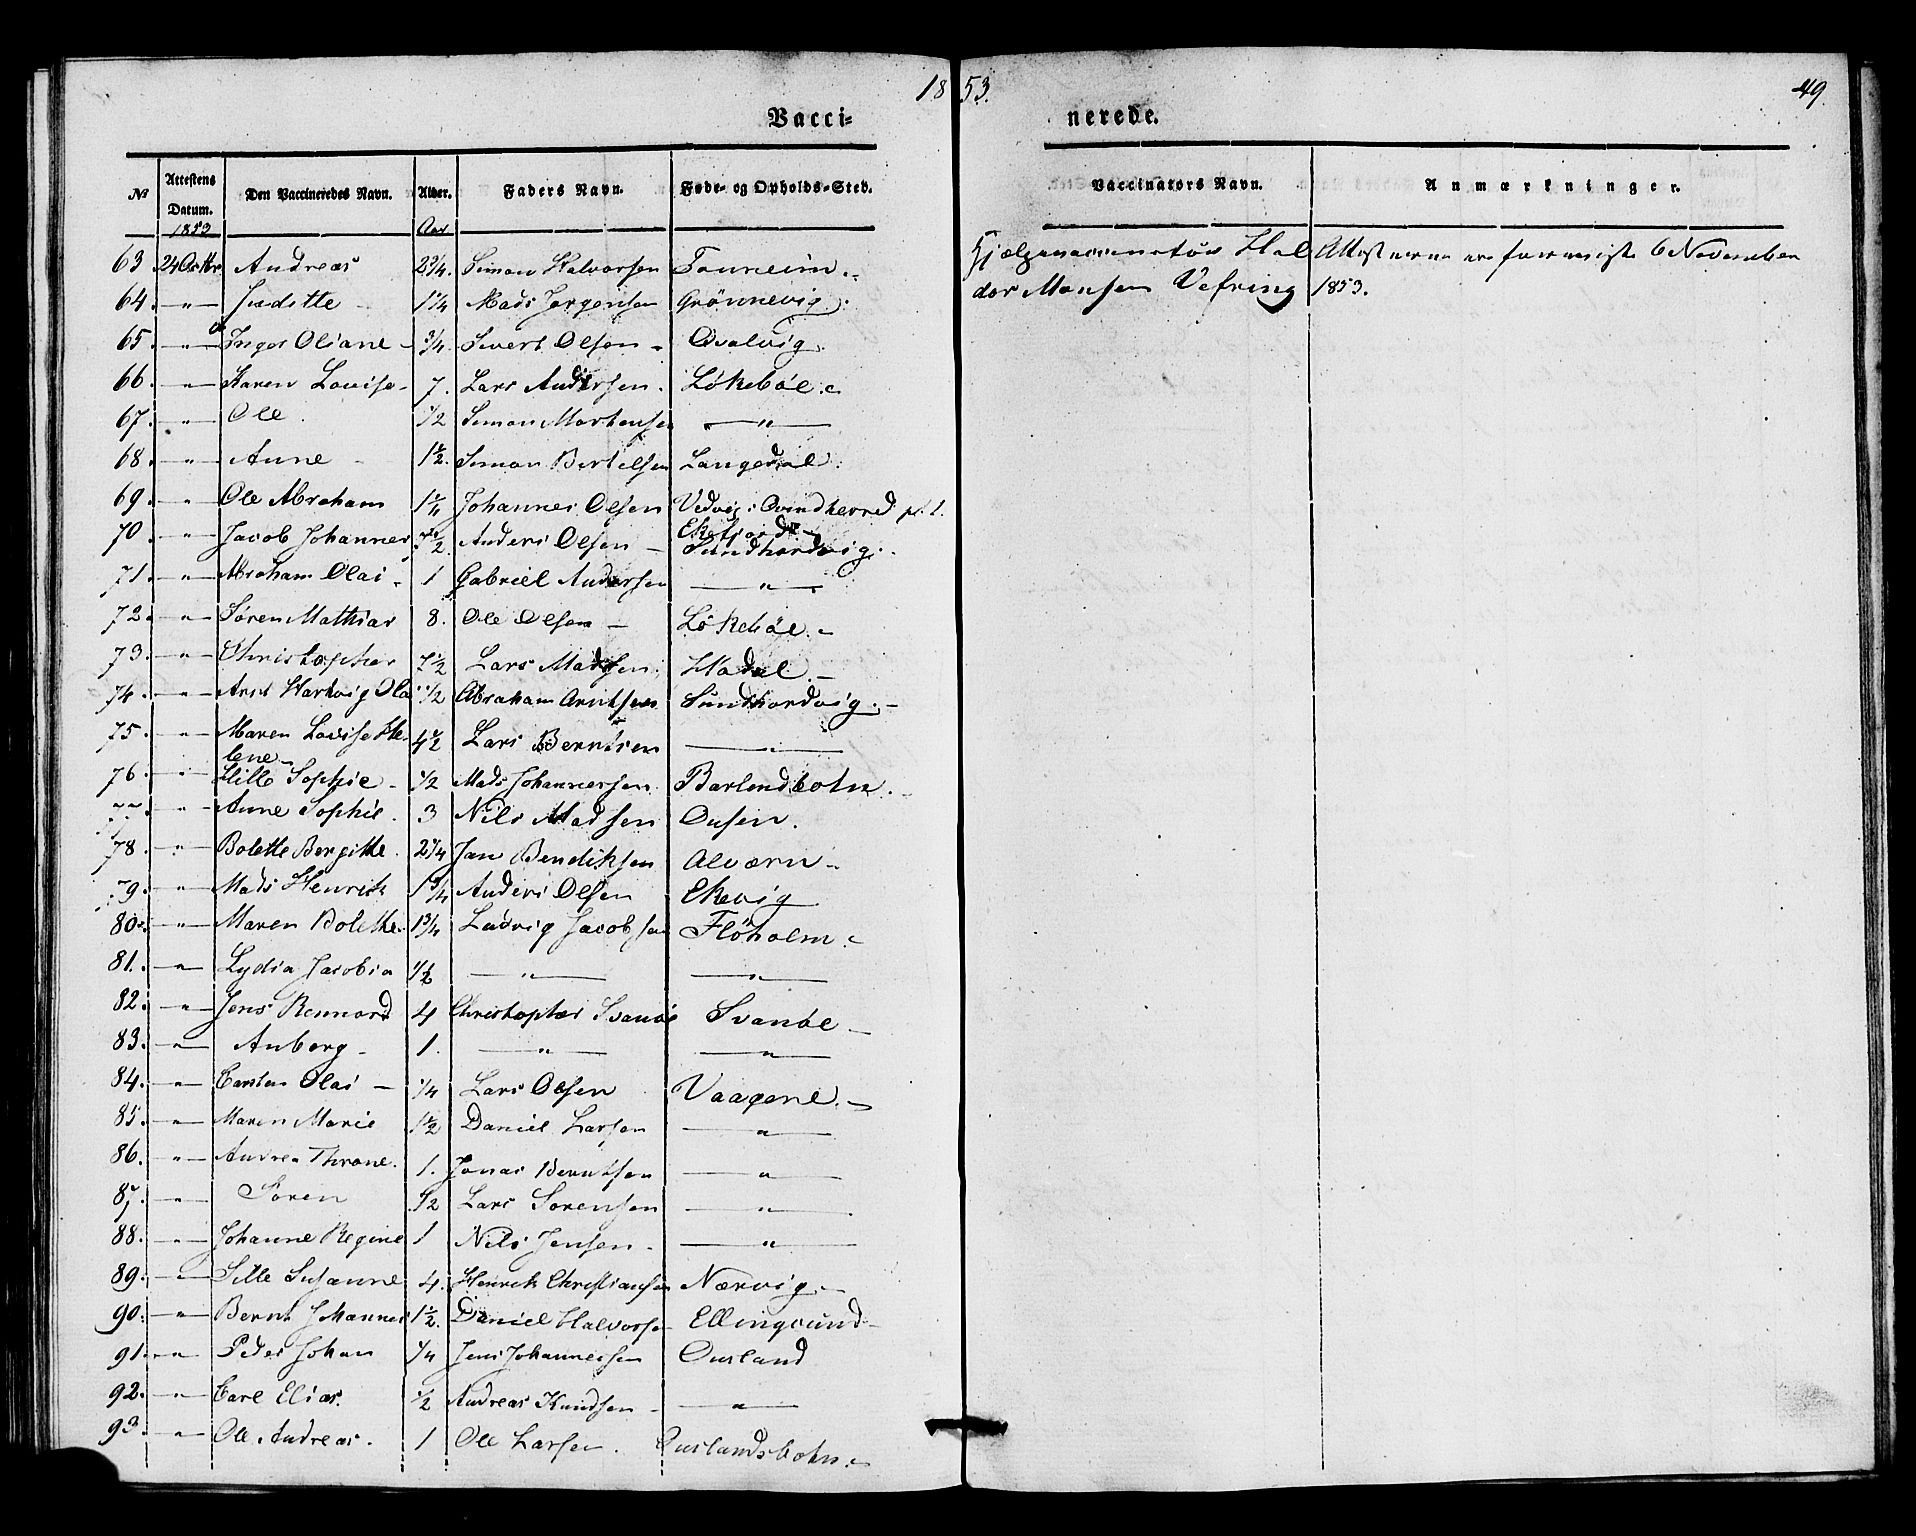 18 53.
49.
Vacci- nerede.
No Attestens Datum. Den Vaccineredes Navn. Alder. Faders Navn. Føde- og Opholds-Sted. Vaccinators Navn. Anmærkninger.
1853 Aar
63. 24 Octbr Andreas 2 3/4. Simon Halvorsen Hal Attesterne ere 6 November
64. " 1 1/4 Mads Jørgensen Grönnevig. dor Monsen Vefring 1853.
65. " Inger Oliane 3/4. Sivert Olsen Qvalvig.
66. " Karen Lovise 7. Lars Andersen. Lökeböe.
67. " Ole. 1/2 Simon Mortensen "
68. " Anne 1 1/2. Simon Bertelsen Langedal.
69. " Ole Abraham Johannes Olsen Vedvig i Qvindherred
70. " Jacob Johannes Anders Olsen Ekefjord Sundhordvig.
71. " Abraham Olai 1 Gabriel Andersen "
72. " Søren Mathias 8. Ole Olsen Lökeböe.
73. " Christopher 7 1/2 Lars Madsen.
74. " Hartvig Ola 1/2 Abraham Arntsen Sundhordvig.
75. " Maren Lovise He- 4 1/2 Lars Berntsen "
lene
76. " Sille Sophie 1/2 Mads Johannessen Barlendbotn.
77. " Anne Sophie. 3 Nils Madsen Ousen.
78. " Bolette Bergitte. 2 1/4 Jan Bendiksen Alværn
79. " Mads Henrik 1 3/4 Anders Olsen Ekevig
80. " Maren Bolette. 1 3/4 Ludvig Jacobsen Flöholm.
81. " Lydia Jacobia 1/2 " "
82. " Jens Rennord 4 Christopher Svanöe Svanöe
83. " Anborg 1. " "
84. " Carsten Olai 1/4 Lars Olsen Vaagene.
85. " Maren Marie 1 1/2 Daniel Larsen "
86. " Andrea Throne. 1. Jonas Berntsen "
87. " Sören 1/2 Lars Sorensen "
88. " Johanne Regine 1 Nils Jensen "
89. " Sille Susanne 4. Henrik Christiansen Nærvig
90. " Bernt Johannes 1 1/2. Daniel Halvorsen Ellingsund
91. " Peder Johan 1/4 Jens Johannessen Ousland
92. " Carl Elias. 1/2 Andreas Knudsen "
93. " Ole Andreas. 1 Ole Larsen. Ouslandsbotn.